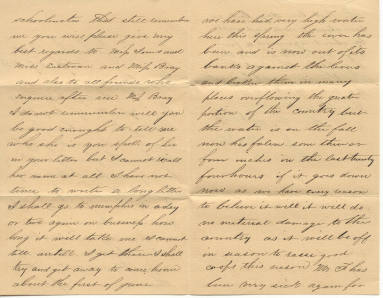 schoolmates that still remember
me you will please give my
best regards to Miss and
Miss Eastman and Miss Bray
and also to all friends who
enquire after me Miss Bray
I do not remember will you
be good enought to tell me
who she is you spoke of her
in your letter but I cannot recall
her name at all I have not
time to write a long letter
I shall go to memphis in a day
or two again on business how
long it will take me I cannot
tell untill I get there I shall
try and get away to come home
about the first of June
we have had very high water
here this Spring the river has
been and is now out of its
banks against the levees
and broken them in many
places overflowing the great
portion of the country but
the water is on the fall
now has fallen some three or
four inches in the last twenty
four hours if it goes down
now as we have every reason
to believe it will it will do
no material damage to the
country as it will be off
in season to raise good
crops this season Mr has
been very sick again for